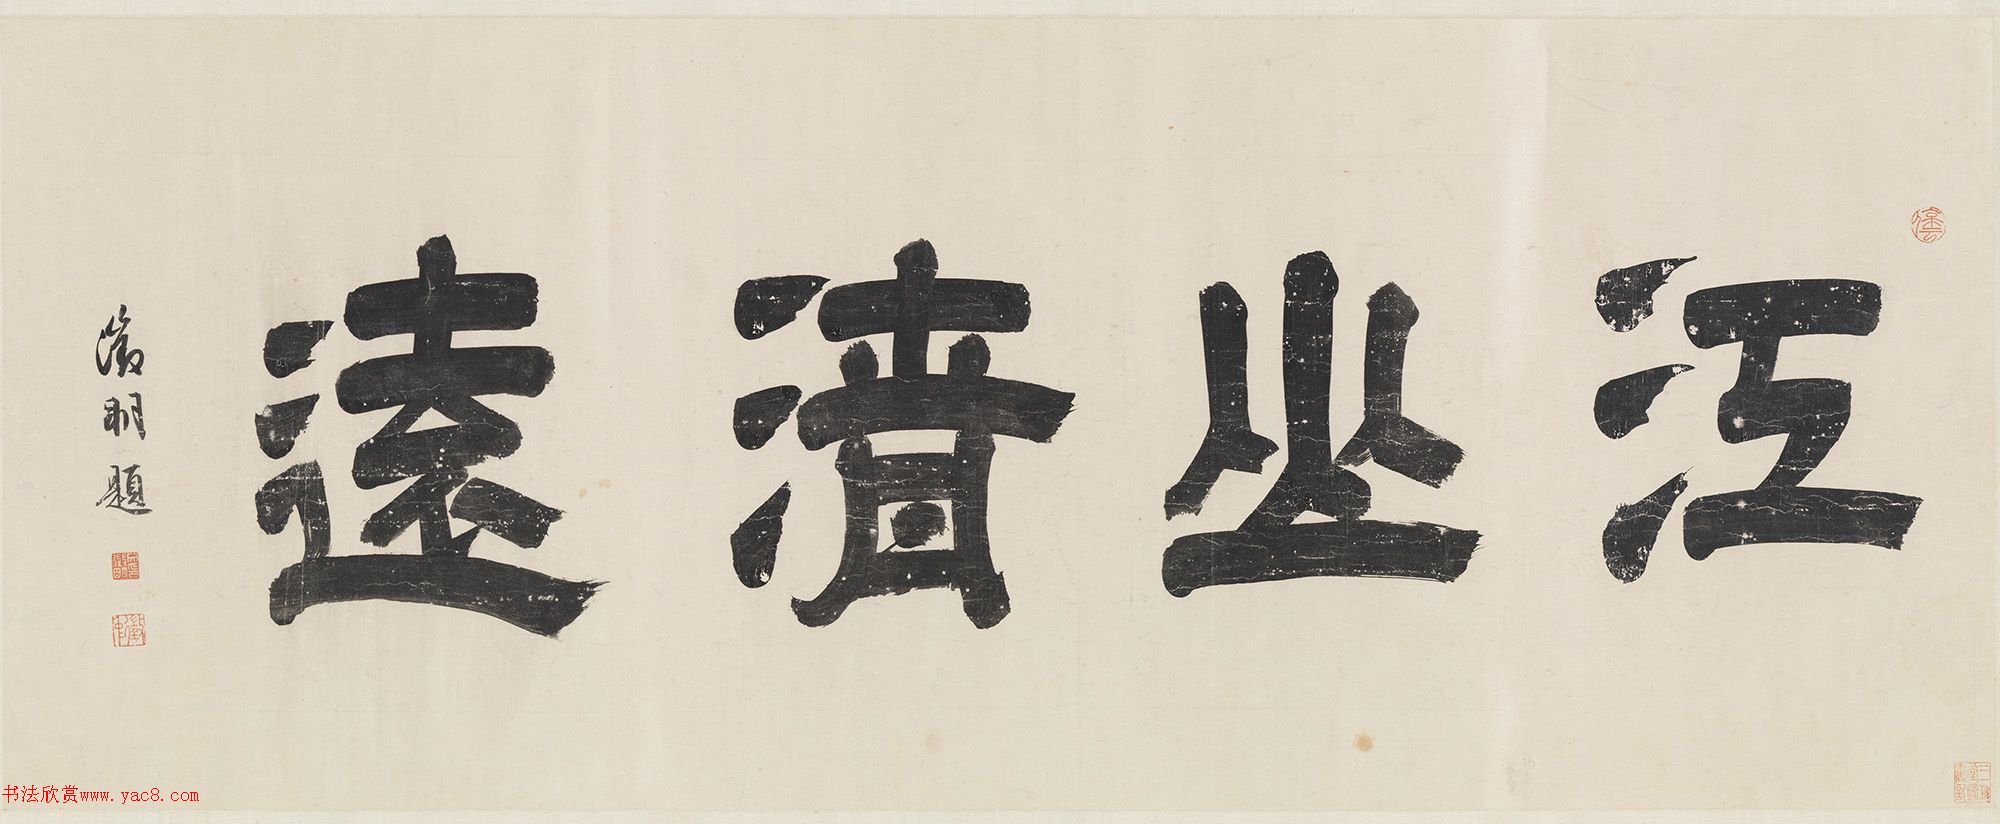 江山清遠
徵明題
书法欣赏www.yac8.com